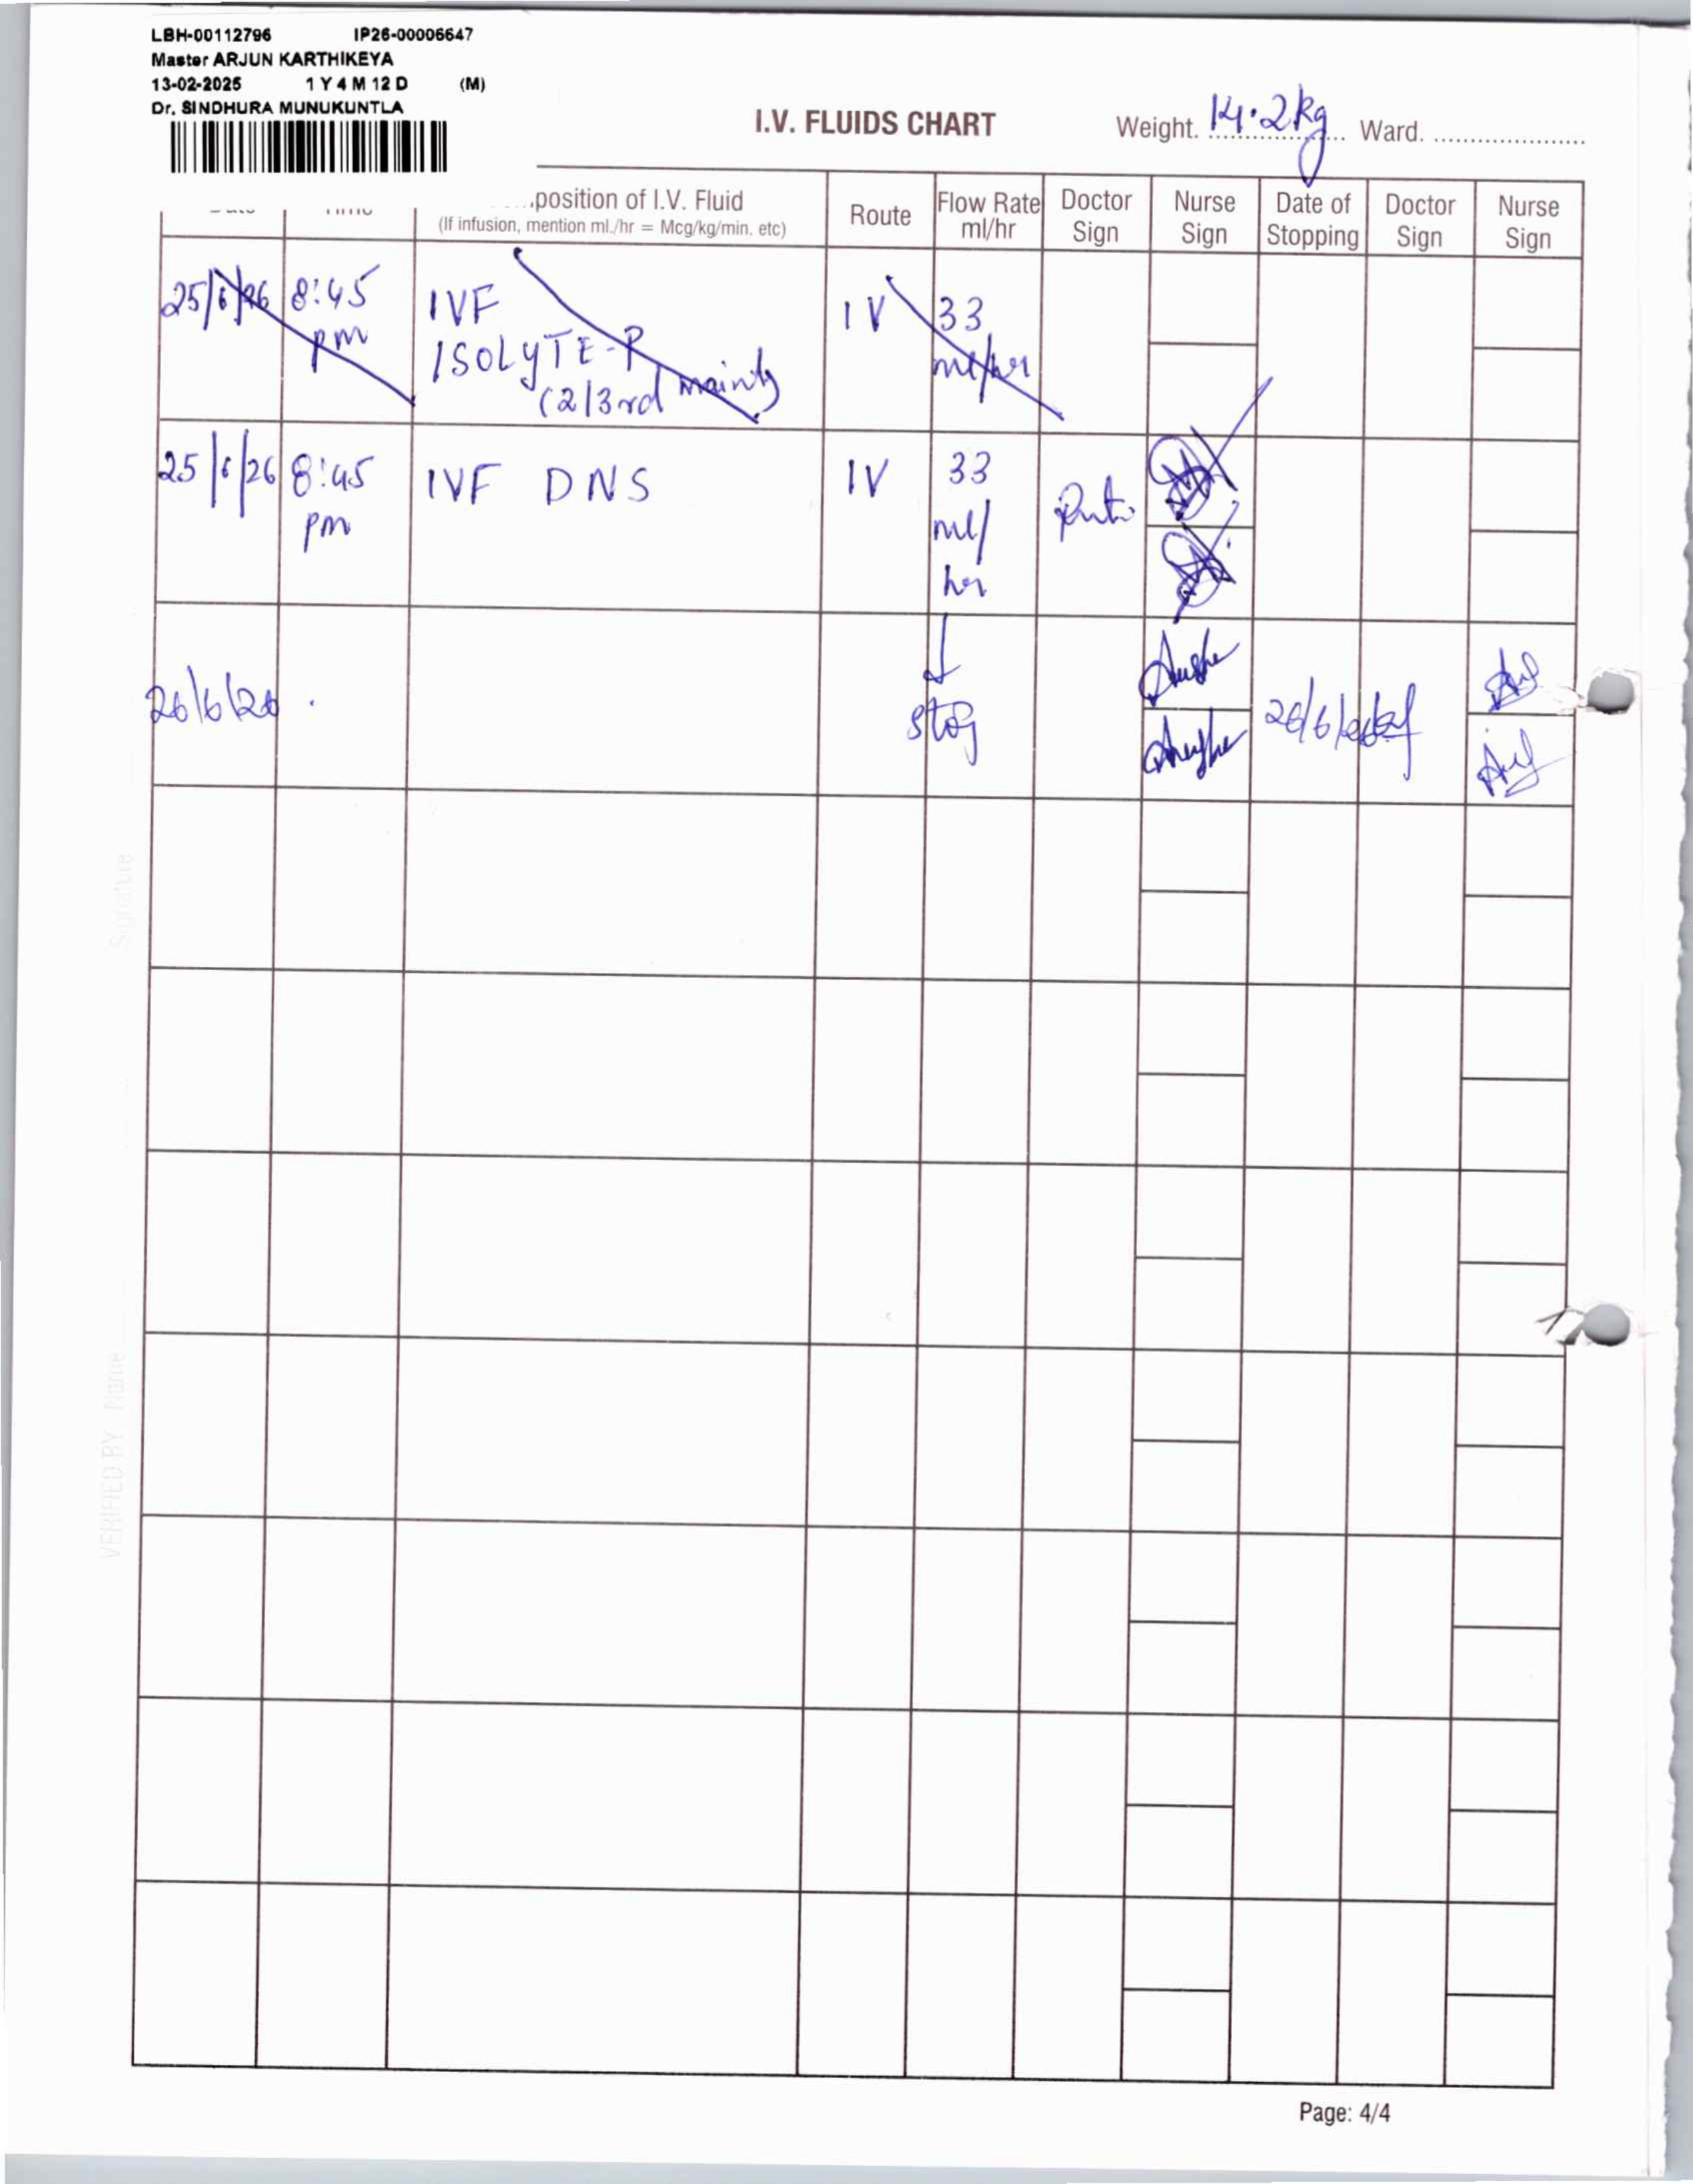 LBH-00112796 IP26-00006647
Master ARJUN KARTHIKEYA
13-02-2025 1 Y 4 M 12 D (M)
Dr. SINDHURA MUNUKUNTLA
I.V. FLUIDS CHART Weight. 14.2kg Ward.
position of I.V. Fluid
(If infusion, mention ml./hr = Mcg/kg/min. etc)
Route
Flow Rate
ml/hr
Doctor
Sign
Nurse
Sign
Date of
Stopping
Doctor
Sign
Nurse
Sign
25/6/26 8:45 pm
IVF
ISOLYTE-P
(2/3rd
IV
33
ml/hr
25/6/26 8:45 pm
IVF DNS
IV
33
ml/
hr
26/6/26
stop
26/6/
Signature
VERIFIED BY Name
Page: 4/4